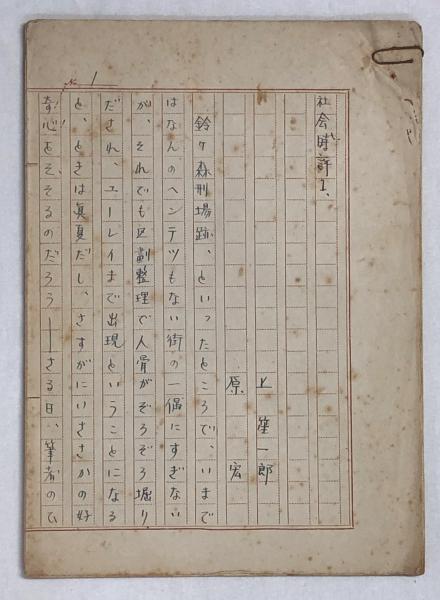 № 1
社会時評 1、
上 笙一郎
原 宏
鈴ヶ森刑場跡、といったところで、いまで
はなんのヘンテツもない街の一偶にすぎない
が、それでも区劃整理で人骨がぞろぞろ堀り
だされ、ユーレイまで出現ということになる
と、ときは真夏だし、さすがにいささかの好
奇心をそそるのだろう――さる日、筆者のひ